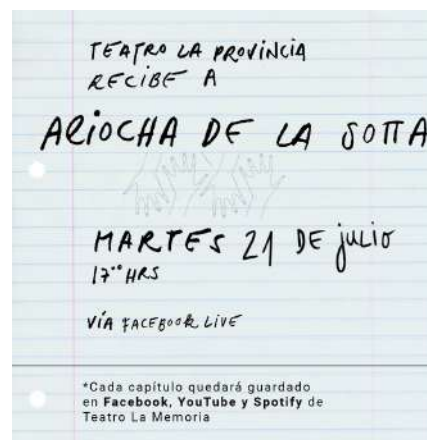 TEATRO LA PROVINCIA
RECIBE A
ARIOCHA DE LA SOTTA
MARTES 21 DE julio
17°° HRS
VÍA FACEBOOK LIVE
*Cada capítulo quedará guardado
en Facebook, YouTube y Spotify de
Teatro La Memoria